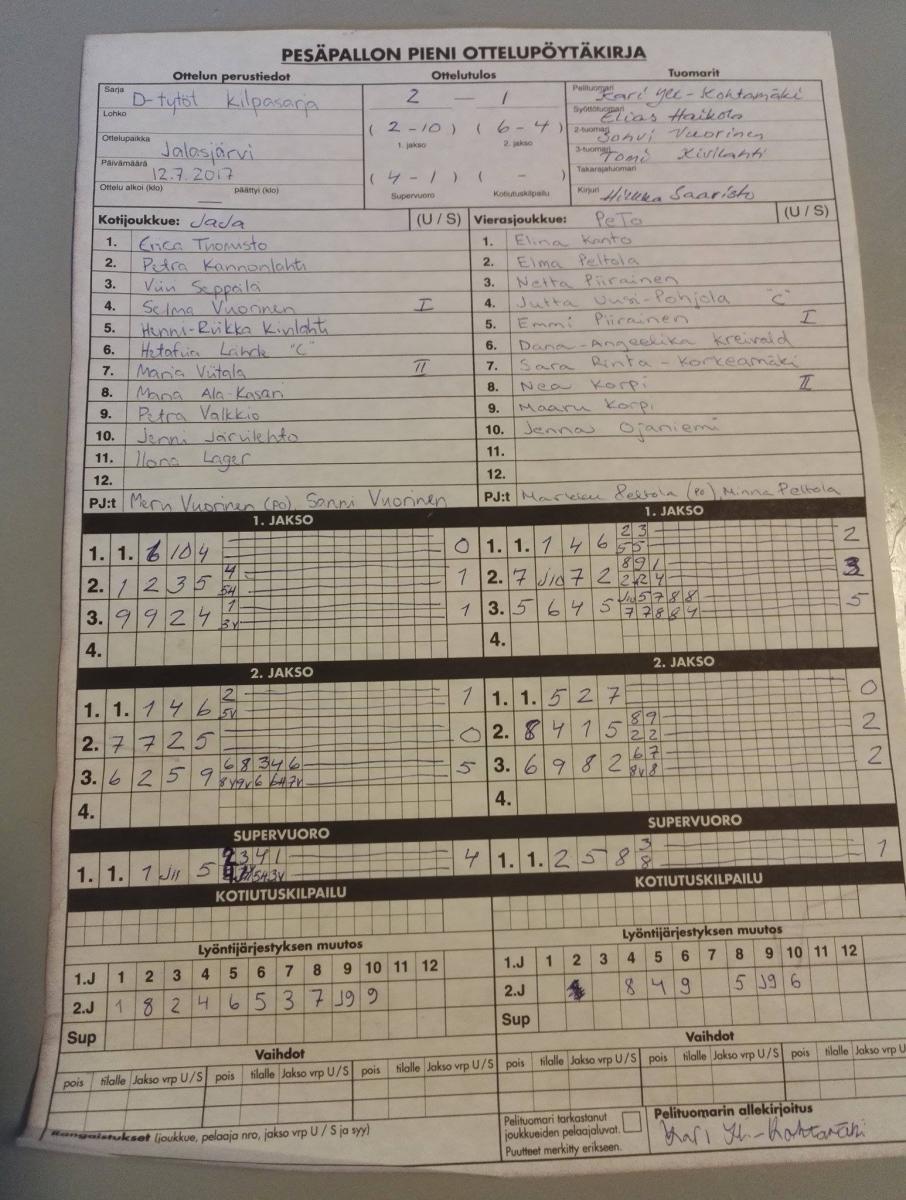 PESÄPALLON PIENI OTTELUPÖYTÄKIRJA
Ottelun perustiedot Ottelutulos Tuomarit
Sarja D-tytöt Kilpasarja
Lohko
Ottelupaikka Jalasjärvi
Päivämäärä 12.7.2017
Ottelu alkoi (klo) päättyi (klo)
2 – 1
(2-10) (6-4)
1. jakso 2. jakso
(4-1) ( - )
Supervuoro Kotiutuskilpailu
Pelituomari Kari Yli-Kohtamäki
Syöttötuomari Elias Haikola
2-tuomari Sohvi Vuorinen
3-tuomari Tomi Kivilahti
Takarajatuomari
Kirjuri Saaristo
Kotijoukkue: JaJa (U / S) Vierasjoukkue: PeTo (U / S)
1. Erica Tuomisto 1. Elina Kanto
2. Petra Kannonlahti 2. Elma Peltola
3. Viivi Seppälä 3. Netta Piirainen
4. Selma Vuorinen I 4. Jutta Uusi-Pohjola "C"
5. Henni-Riikka Kivilahti 5. Emmi Piirainen I
6. Lähde "C" 6. Dana-Angeelika Kreivald
7. Maria Viitala II 7. Sara Rinta-Korkeamäki
8. Maria Ala-Kasari 8. Nea Korpi II
9. Petra Valkkio 9. Maaru Korpi
10. Jenni Järvilehto 10. Jenna Ojaniemi
11. Ilona Lager 11.
12. 12.
PJ:t Meru Vuorinen (PO), Sanni Vuorinen PJ:t Markku Peltola (PO), Minna Peltola
1. JAKSO 1. JAKSO
1. 1. 6 10 4 0 1. 1. 1 4 6 23 55 2
2. 1 2 3 5 4 54 1 2. 7 Jio 7 2 891 3
3. 9 9 2 4 1 3v 1 3. 5 6 4 5 Jio 5 7 8 8 7 7 8 8 4 5
4. 4.
2. JAKSO 2. JAKSO
1. 1. 1 4 6 2 5v 1 1. 1. 5 2 7 0
2. 7 7 2 5 0 2. 8 4 1 5 89 22 2
3. 6 2 5 9 6 8 3 4 6 5 3. 6 9 8 2 67 8v8 2
4. 4.
SUPERVUORO SUPERVUORO
1. 1. 1 Jii 5 2 3 4 1 4 1. 1. 2 5 8 3 8 1
KOTIUTUSKILPAILU KOTIUTUSKILPAILU
Lyöntijärjestyksen muutos Lyöntijärjestyksen muutos
1.J 1 2 3 4 5 6 7 8 9 10 11 12 1.J 1 2 3 4 5 6 7 8 9 10 11 12
2.J 1 8 2 4 6 5 3 7 J9 9 2.J 8 4 9 5 J9 6
Sup Sup
Vaihdot Vaihdot
pois tilalle Jakso vrp U / S pois tilalle Jakso vrp U / S pois tilalle Jakso vrp U / S pois tilalle Jakso vrp U / S pois tilalle Jakso vrp U / S pois tilalle Jakso vrp U
Rangaistukset (joukkue, pelaaja nro, jakso vrp U / S ja syy)
Pelituomari tarkastanut
joukkueiden pelaajaluvat.
Puutteet merkitty erikseen.
Pelituomarin allekirjoitus
Kari Yli-Kohtamäki